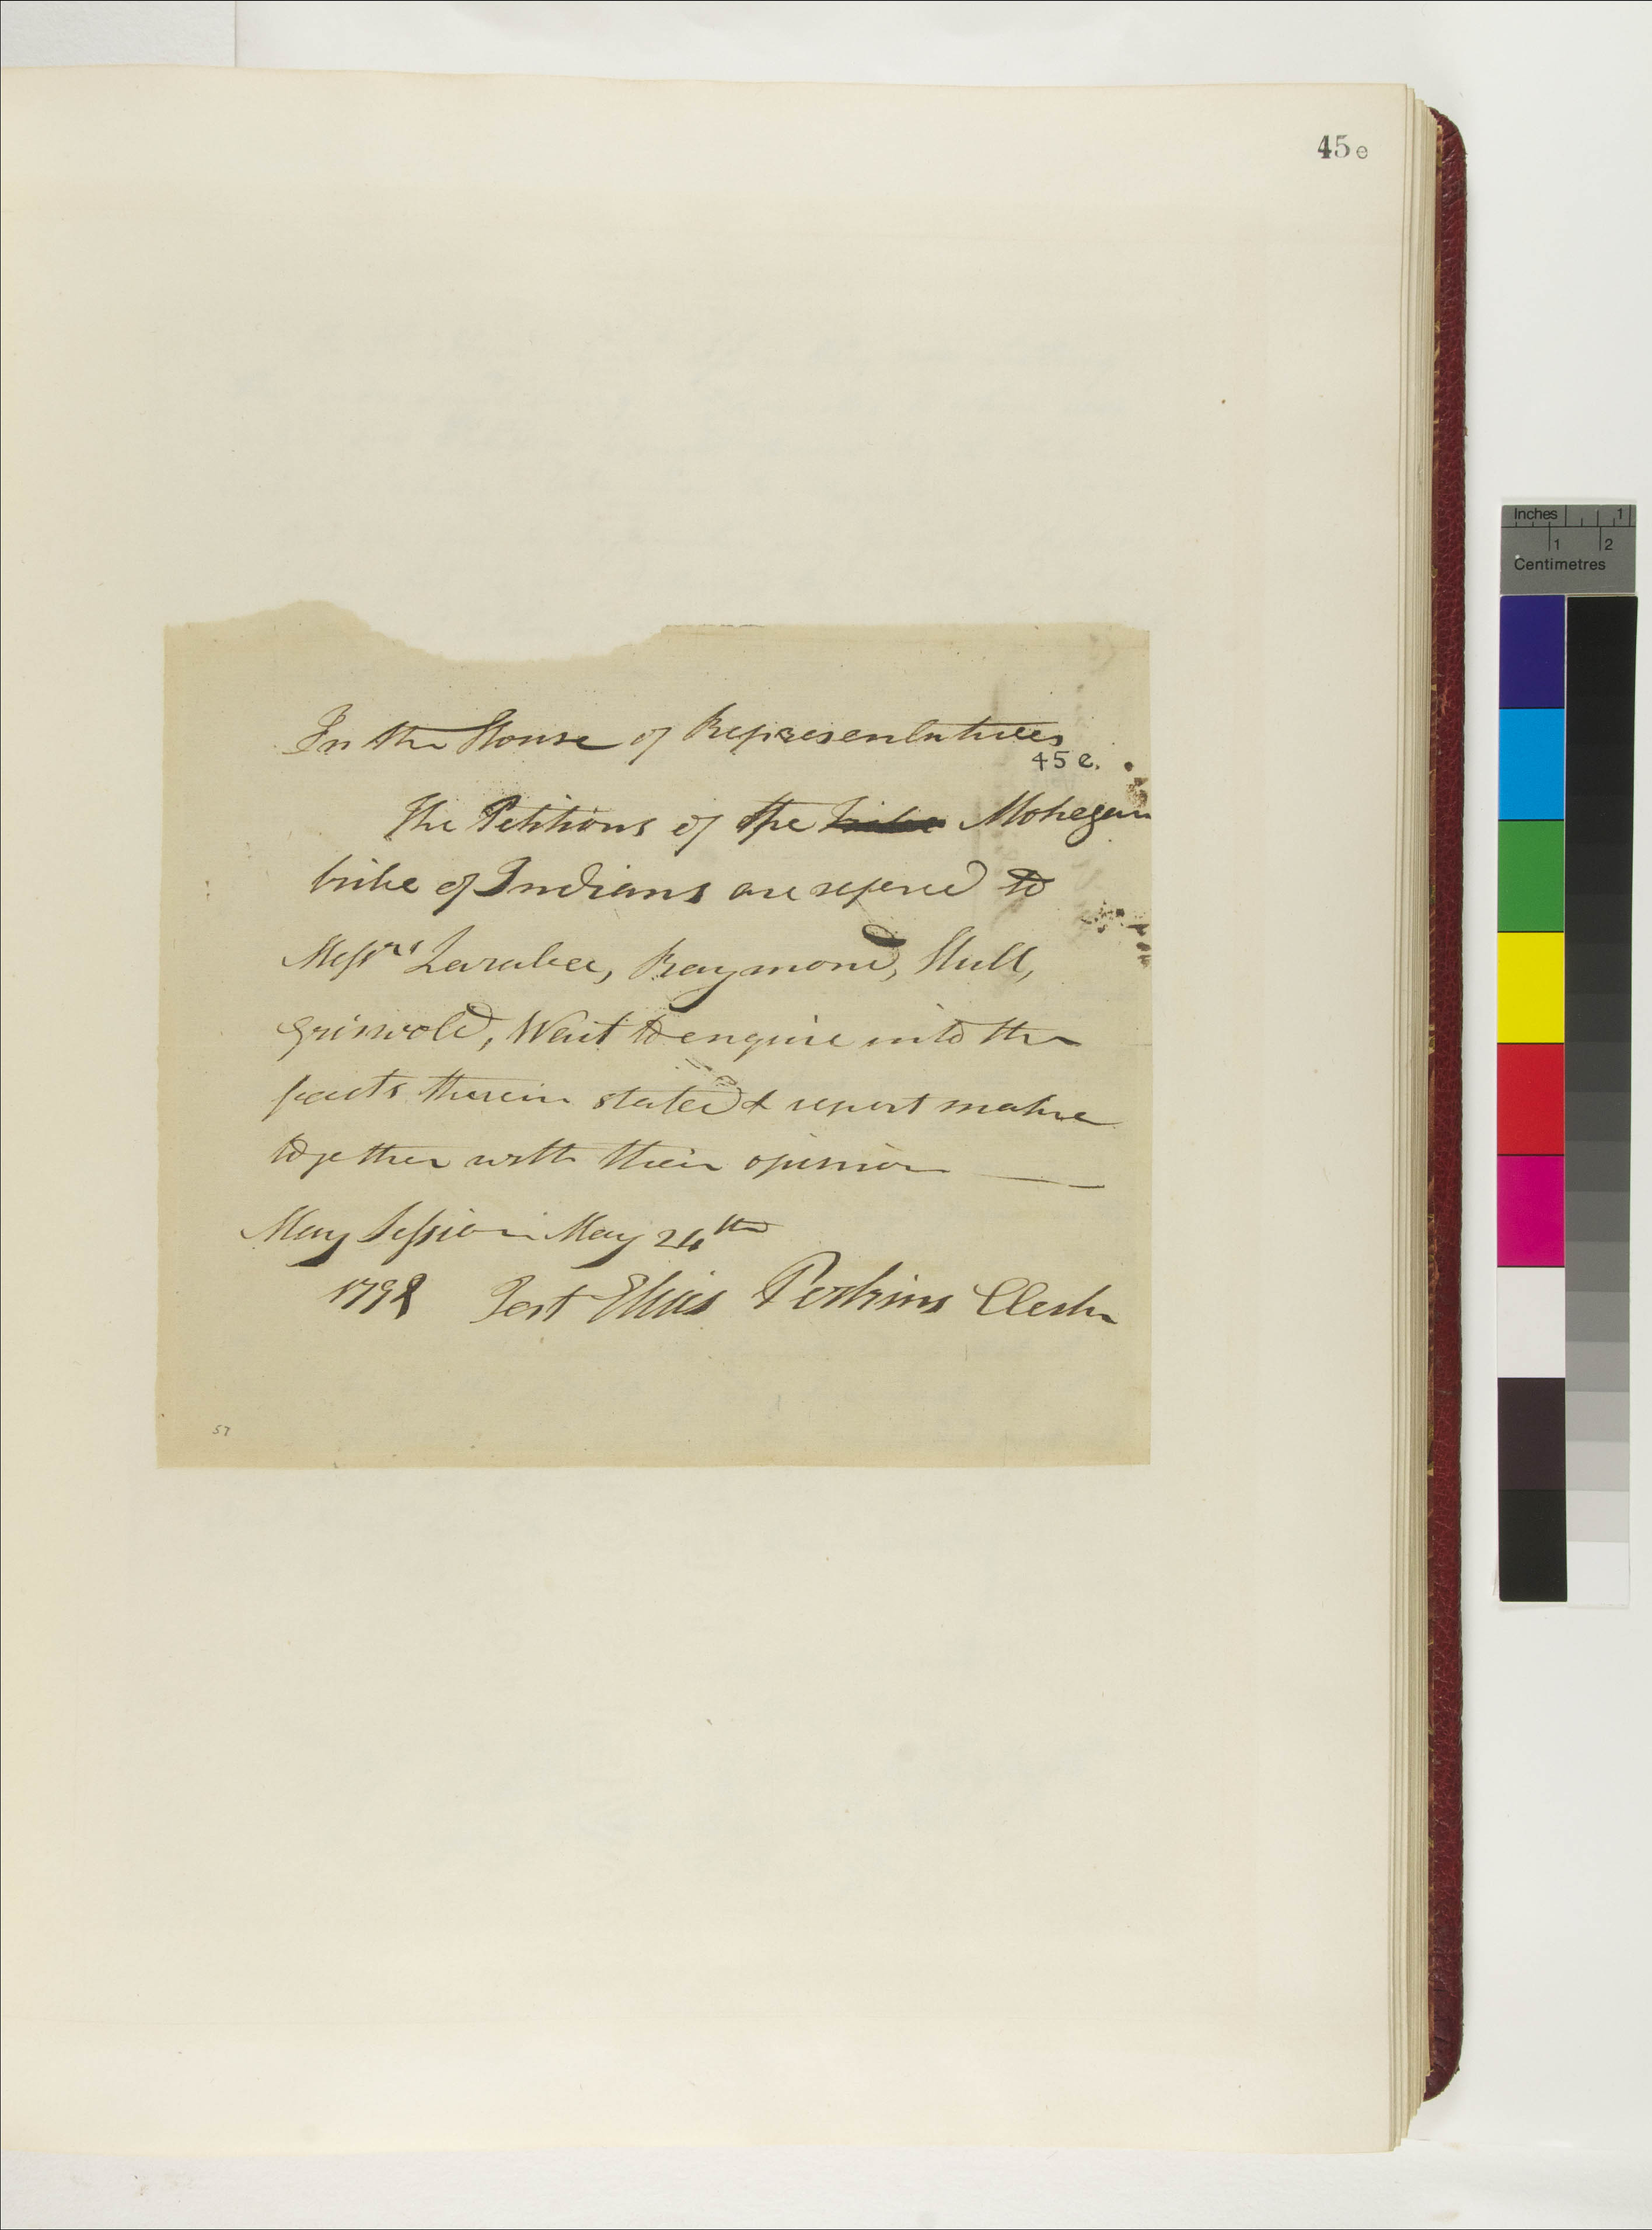 45e
In the House of Representatives
45 e.
The Petitions of the tribe Mohegan
tribe of Indians are refered to
Messrs Larabee, Raymond, Hull,
Griswold, Wait to enquire into the
facts therein stated & report make
together with their opinion
May Session May 24th
1792 Test Elias Perkins Clerk
57
Inches 1
1 2
Centimetres